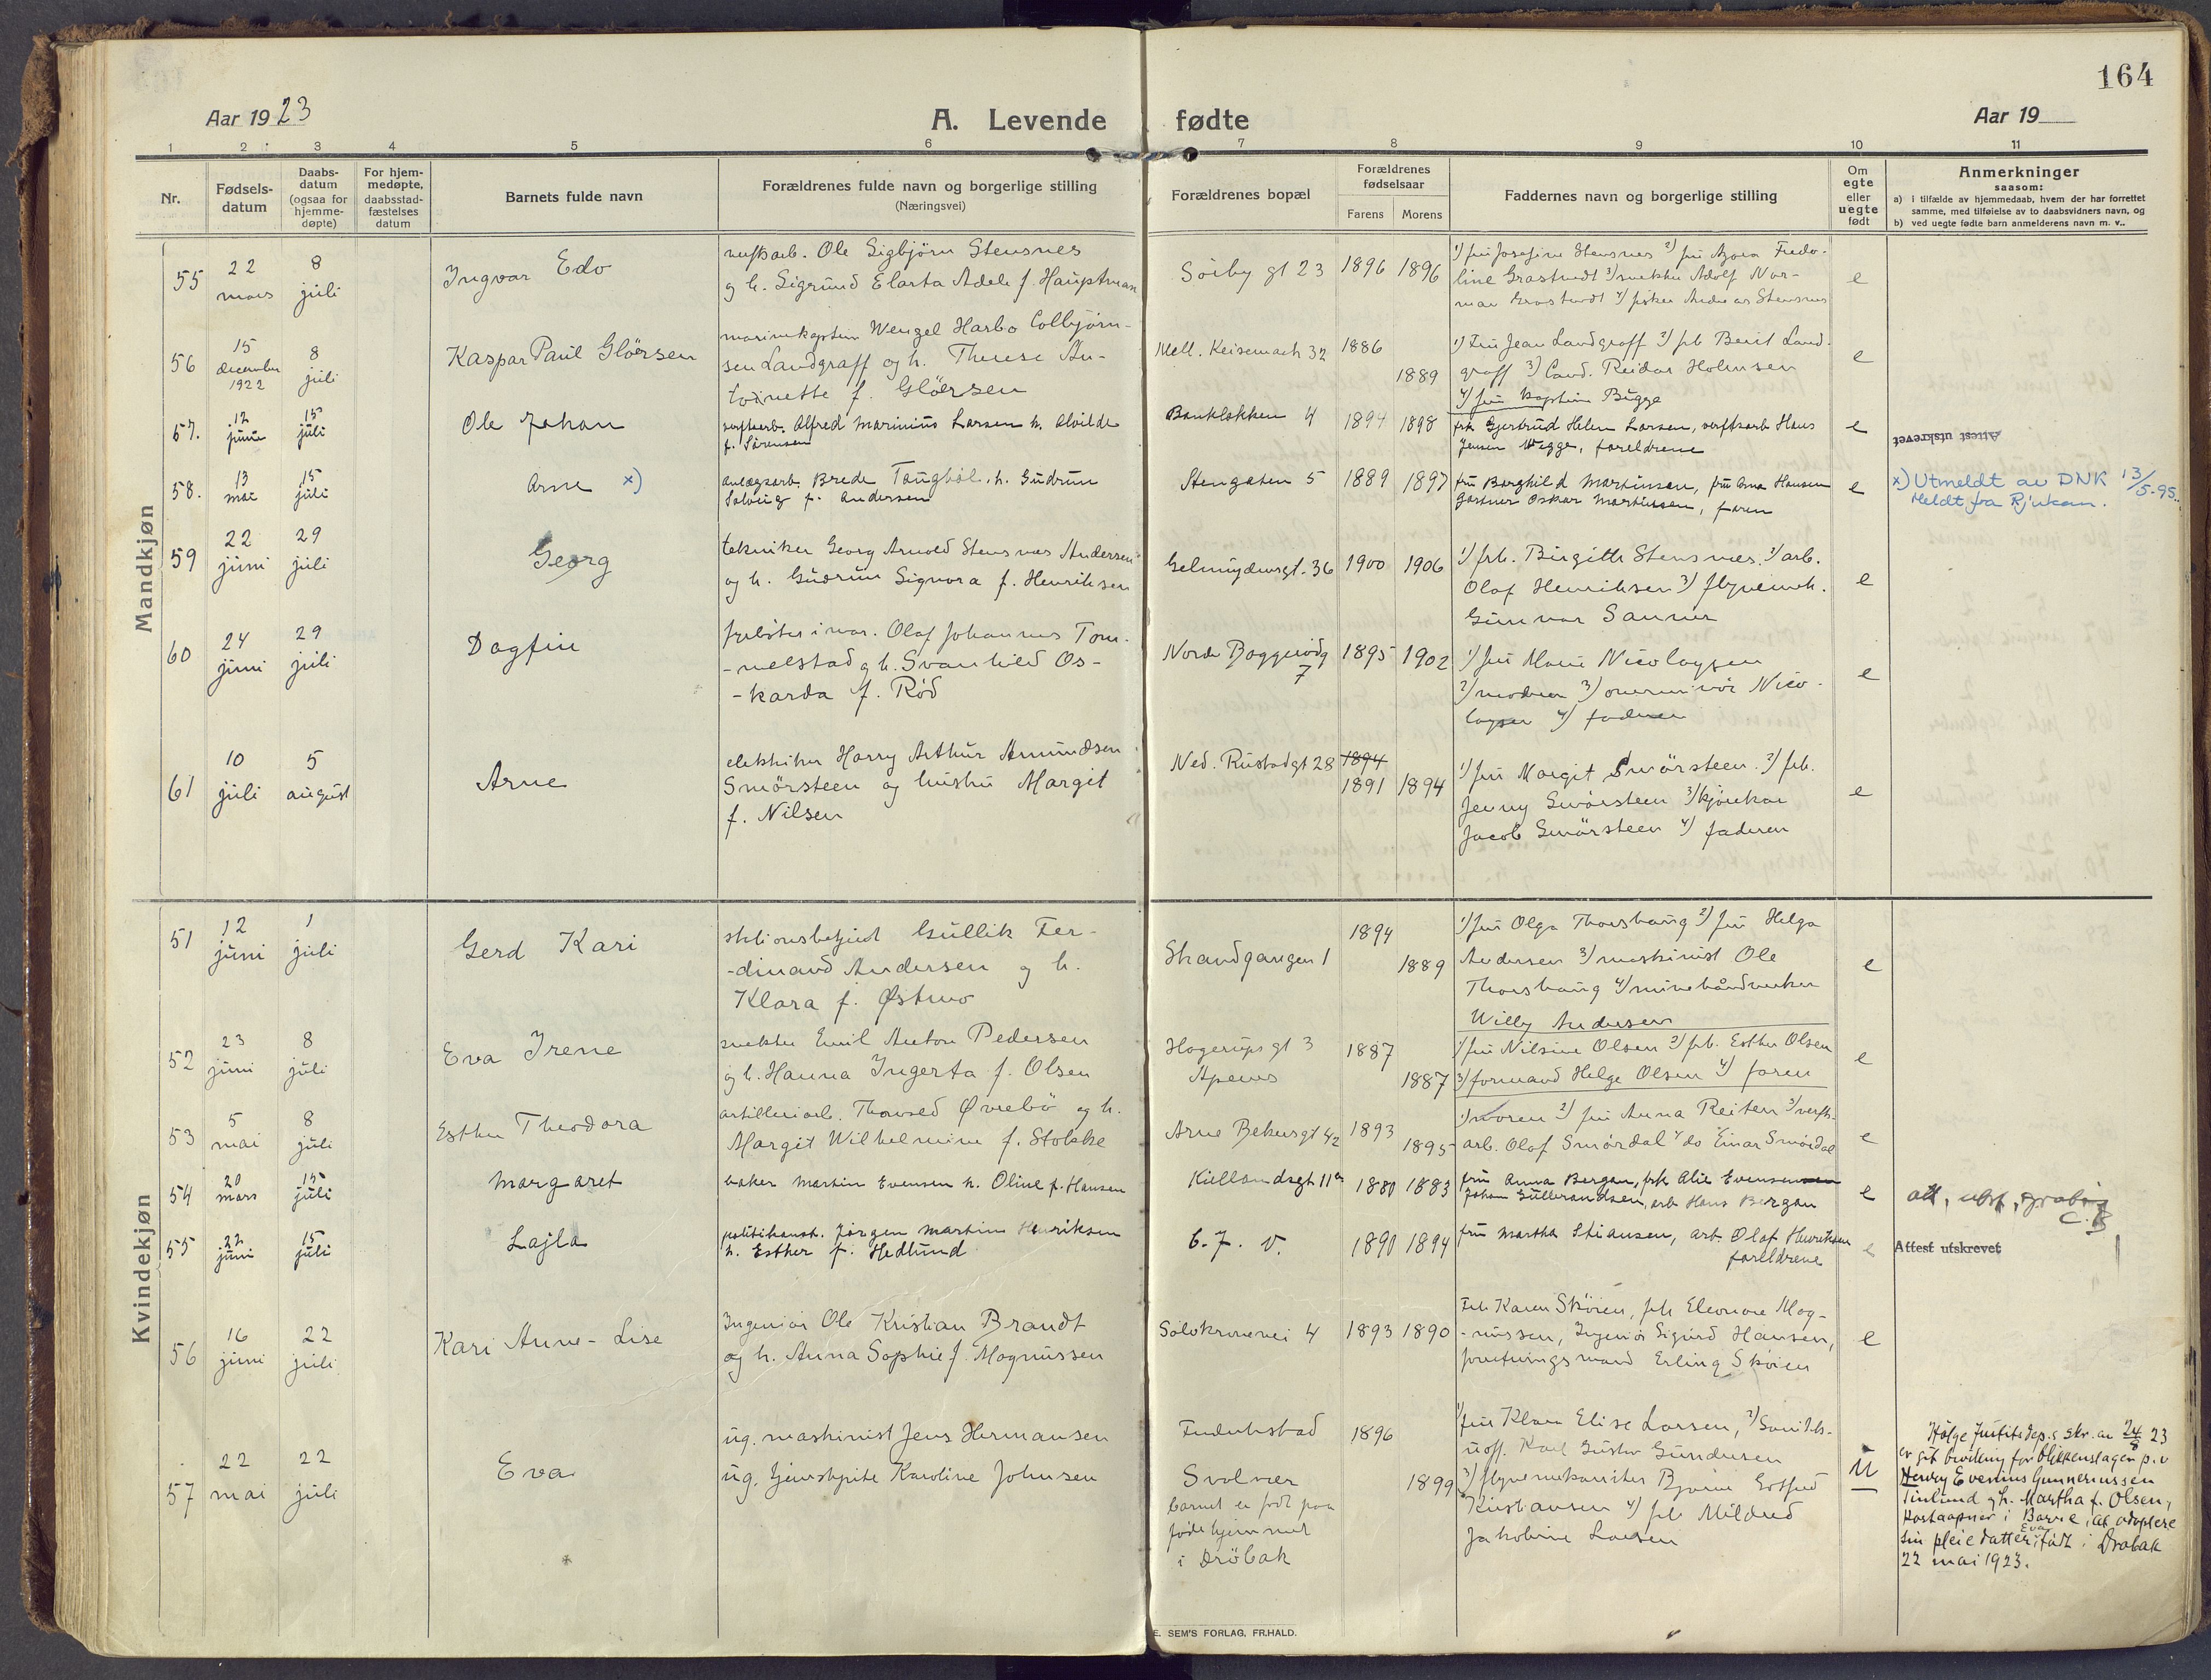 164
Aar 1923
A. Levende fødte
Aar 19
1 2 3 4 5 6 7 8 9 10 11
Nr.
Fødsels-
datum
Daabs-
datum
(ogsaa for
hjemme-
døpte)
For hjem-
medøpte,
daabsstad-
fæstelses
datum
Barnets fulde navn
Forældrenes fulde navn og borgerlige stilling
(Næringsvei)
Forældrenes bopæl
Forældrenes
fødselsaar
Farens Morens
Faddernes navn og borgerlige stilling
Om
egte
eller
uegte
født
Anmerkninger
saasom:
a) i tilfælde av hjemmedaab, hvem der har forrettet
samme, med tilføielse av to daabsvidners navn, og
b) ved uegte fødte barn anmelderens navn m. v..
Mandkjøn
55
22
mars
8
juli
Ingvar Edo
Ole Sigbjörn Stensnes
og h. Sigrund Elarta Adele f. Hauptman
Söiby gt 23
1896 1896
1) fru Josefine Stensnes 2) fru
line Grastvedt 3) Adolf Nor-
man Grastvedt 4) fisker Andreas Stensnes
e
56
15
december
1922
8
juli
Kaspar Paul Glöersen
marinekaptein Wenzel Harbo Colbjörn-
sen Landgraff og h. Therese An-
toinette f. Glöersen
Mell. Keisemark 32
1886
1889
1) Fru Jean Landgraff 2) frk Berit Land-
graff 3) Cand. Reidar Holmsen
4) fru kaptein Bügge
e
57.
12
june
15
juli
Ole Johan
verftsarb. Alfred Marinius Larsen h. Alvilde
f. Sörensen
Bankløkken 4
1894 1898
frk Gjertrud Helen Larsen, verftsarb Hans
Jensen Wegge, foreldrene
e
Attest utskrevet
58.
13
mai
15
juli
Arne x)
anlægsarb. Brede Taugböl, h. Gudrun
Solveig f. Andersen
Stengaten 5
1889 1897
fru Borghild Martinsen, fru Hansen
gartner Oskar Martinsen, faren
e
x) Utmeldt av DNK 13/5-95.
Meldt fra Rjukan.
59
22
juni
29
juli
Georg
tekniker Georg Arnold Stensnæs Andersen
og h. Gudrun Signora f. Henriksen
Gelmuydensgt. 36
1900 1906
1) frk. Birgith Stensnæs. 2) arb.
Olaf Henriksen 3) flyvemek.
Gunnar Sanner
e
60
24
juni
29
juli
Dagfin
fyrböter i mar. Olaf Johannes Tom-
-melstad og h. Svanhild Os-
-karda f. Röd
Nordre Baggerödg
7
1895 1902
1) fru Marie Nicolaysen
2) modren 3) Nico-
laysen 4) faderen
e
61
10
juli
5
august
Arne
elektriker Harry Arthur Amundsen
Smörsteen og hustru Margit
f. Nilsen
Ned. Rustadgt 28
1894
1891 1894
1) fru Margit Smörsteen. 2) frk.
Jenny Smörsteen 3) kjörekar
Jacob Smörsteen 4) faderen
e
Kvindekjøn
51
12
juni
1
juli
Gerd Kari
stationsbetjent Gullik Fer-
-dinand Andersen og h.
Klara f. Østmo
Strandgangen 1
1894
1889
1) fru Olga Thorshaug 2) fru Helga
Andersen 3) maskinist Ole
Thorshaug 4) minehåndverker
Willy Andersen
e
52
23
juni
8
juli
Eva Irene
snekker Emil Anton Pedersen
og h. Hanna Ingerta f. Olsen
Hogerups gt 3
Apenes
1887
1887
1) fru Nilsine Olsen 2) frk. Esther Olsen
3) formand Helge Olsen 4) faren
e
53
5
mai
8
juli
Esther Theodora
artilleriarb. Thorvald Øvrebö og h.
Margit Wilhelmine f. Stokke
Arne Bekersgt 42
1893
1895
1) moren 2) fru Anna Reiten 3) verfts-
arb. Olaf Smördal 4) do Einar Smördal
e
54
20
mars
15
juli
Margaret
baker Martin Evensen h. Oline f. Hansen
Kiellandsgt 11a
1880 1883
fru Anna Bergan, frk Alie Evensen
Johan Gulbrandsen, arb Hans Bergan
e
att. utst,
C. B
55
22
juni
15
juli
Lajla
politikonst. Jörgen Martin Henriksen
h. Esther f. Hedlund
6. 7. V.
1890 1894
fru Martha Stiansen, arb Olaf Henriksen
foreldrene
e
Attest utskrevet
56
16
juni
22
juli
Kari Anne-Lise
Ingeniör Ole Kristian Brandt
og h. Anna Sophie f. Magnussen
Solokronevei 4
1893 1890
Frk Karen Sköien, frk Eleonore Mag-
-nussen, Ingeniör Sigurd Hansen,
forretningsmand Erling Sköien
e
57
22
mai
22
juli
Eva
ug. maskinist Jens Hermansen
ug. tjenestepike Karoline Johnsen
Frederikstad
Svolvær
barnet er födt paa
födehjemmet
i Dröbak
1896
1899
1) fru Klara Elise Larsen, 2) Sanitets-
uoff. Karl Gustav Gundersen
3) flyvemekaniker Bjarne Gotfred
Kristiansen 4) frk Mildred
Jakobine Larsen
U
Ifølge Justitsdep.s skr. av 24/8 23
er git bevilling for Blikkenslager p.v
Henry Evenius Gunneriussen
Tinlund og h. Martha f. Olsen,
Postaapner i Borre, at adoptere
sin pleiedatter Eva, født i Drøbak
22 mai 1923.
E. SEM'S FORLAG, FR.HALD.